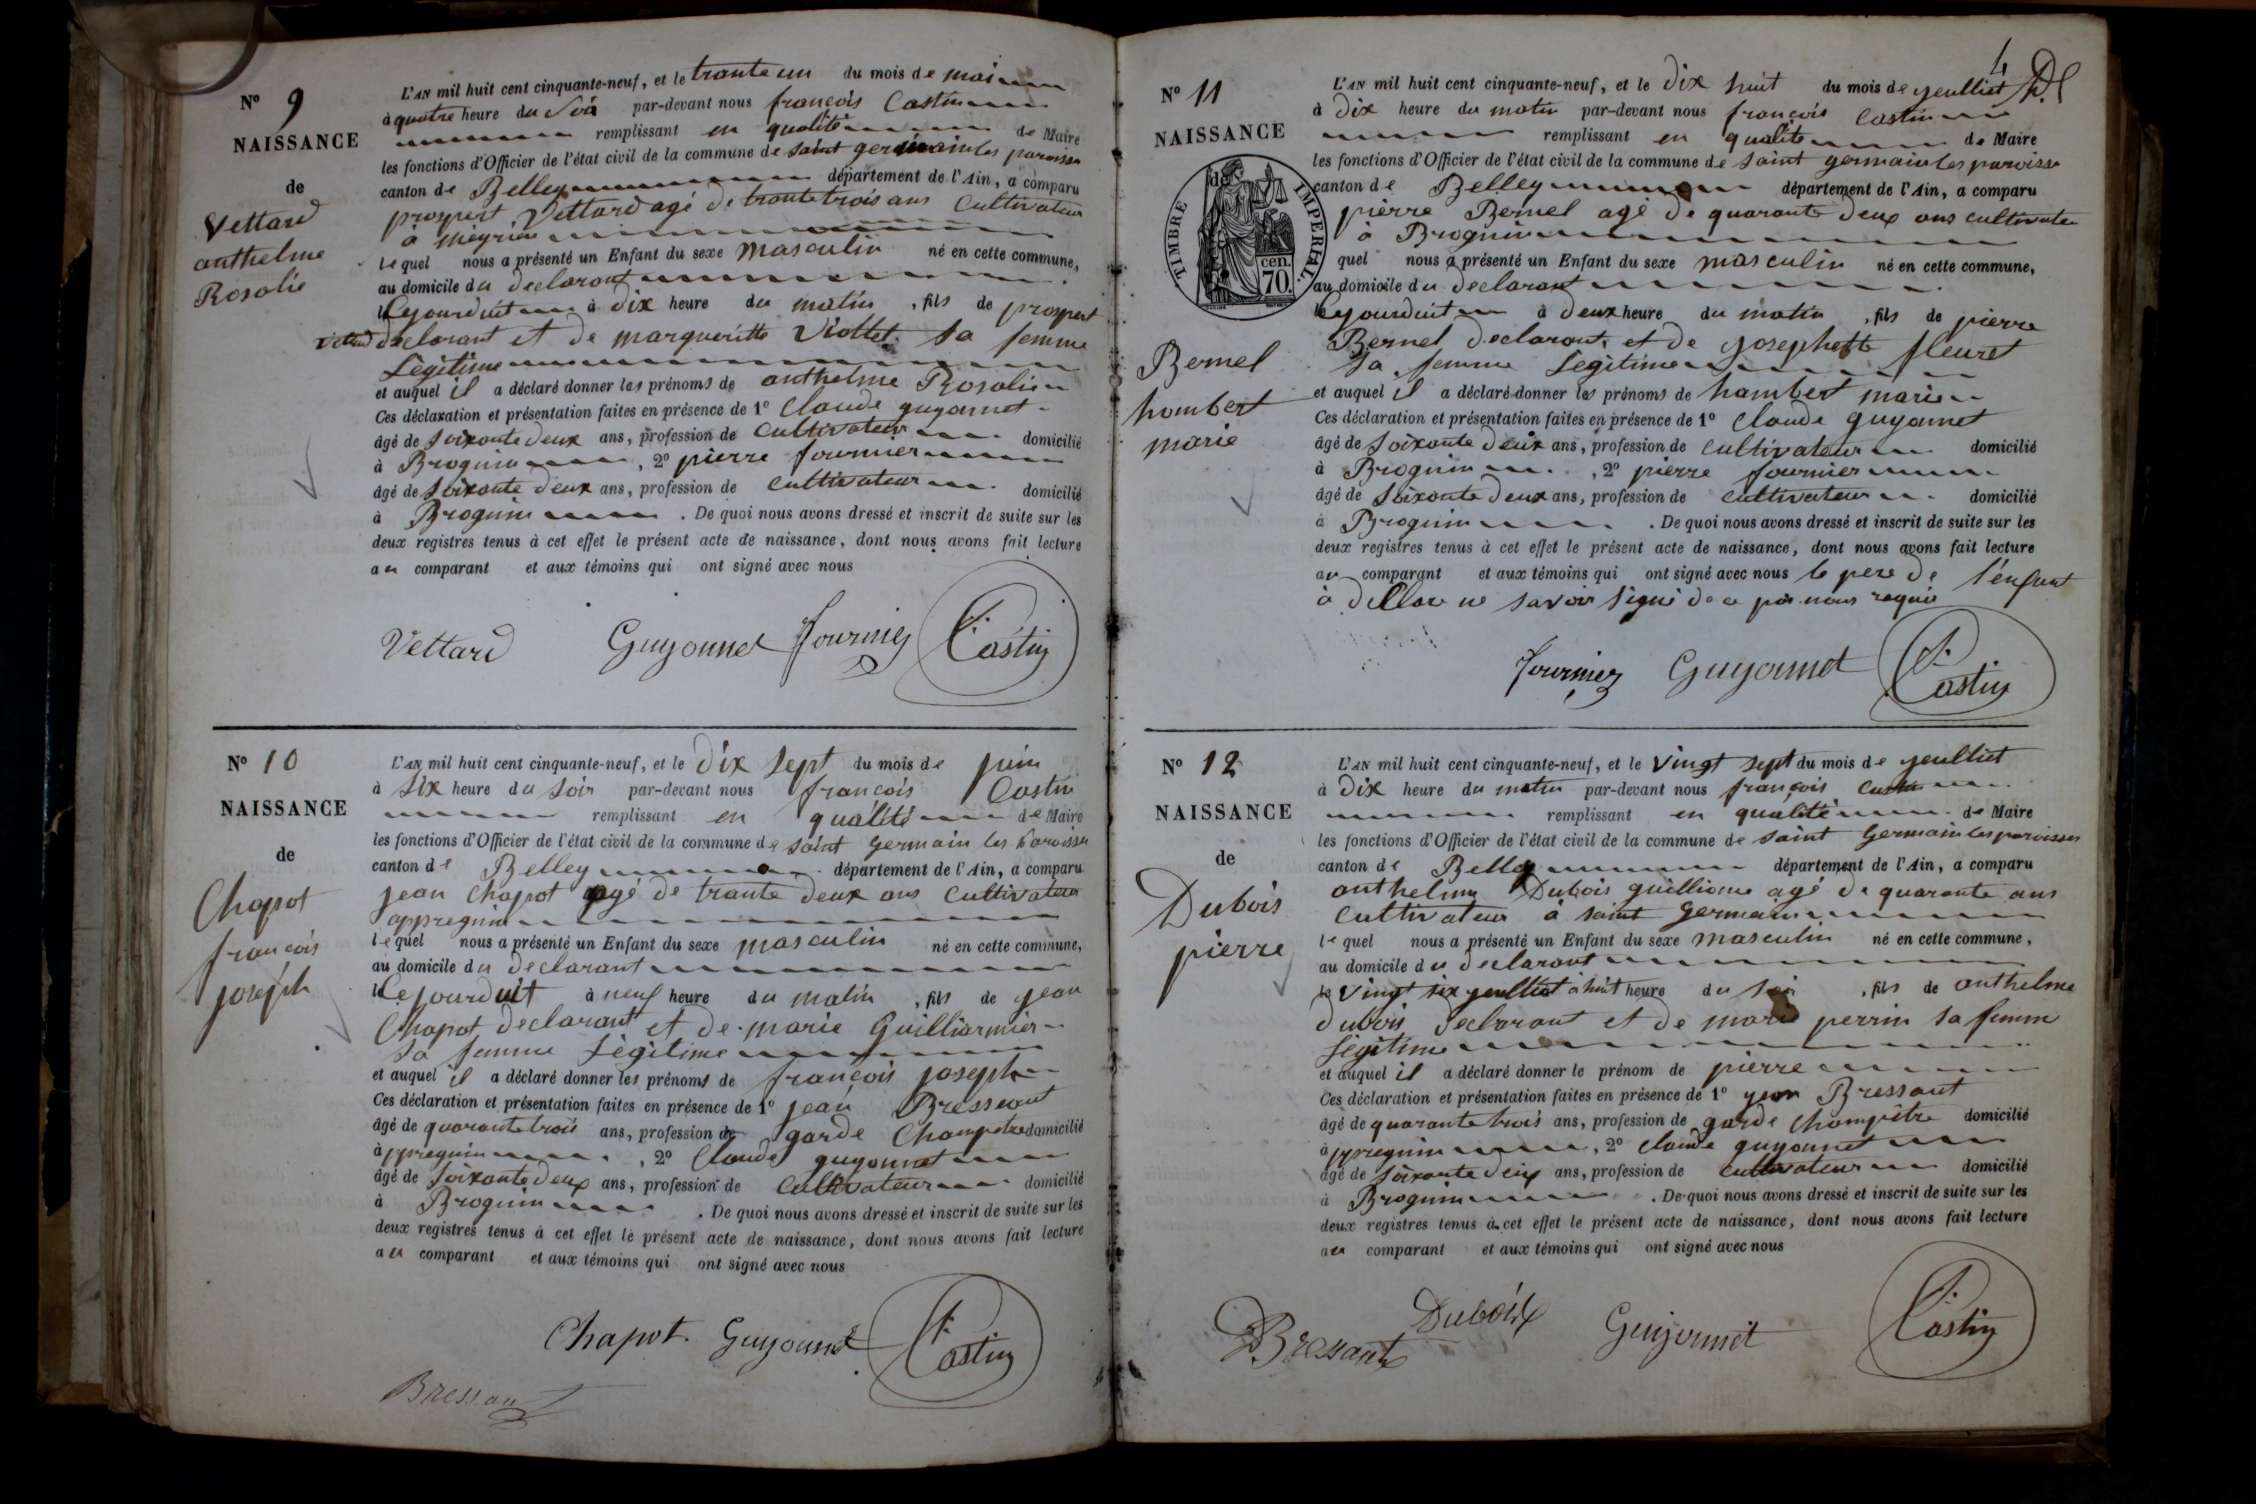 Nº 9
NAISSANCE
de
Vettard
anthelme
Rosalie
L'AN mil huit cent cinquante-neuf, et le trante un du mois de mai
à quatre heure du Soir par-devant nous françois Castin
remplissant en qualité de Maire
les fonctions d'Officier de l'état civil de la commune de saint germain les paroisse
canton de Belley département de l'Ain, a comparu
prospert Vettard agé de trante trois ans Cultivateur
à meyrieu
lequel nous a présenté un Enfant du sexe masculin né en cette commune,
au domicile du declarant
le Cejourduit à dix heure du matin, fils de prospert
Vettard declarant et de margueritte Viollet sa femme
Légitime
et auquel il a déclaré donner les prénoms de anthelme Rosalie
Ces déclaration et présentation faites en présence de 1º Claude guyonnet
âgé de soixante deux ans, profession de Cultivateur domicilié
à Brognin, 2º pierre fournier
âgé de soixante deux ans, profession de cultivateur domicilié
à Brognin. De quoi nous avons dressé et inscrit de suite sur les
deux registres tenus à cet effet le présent acte de naissance, dont nous avons fait lecture
au comparant et aux témoins qui ont signé avec nous
Vettard Guyonnet fournier f. Castin
Nº 10
NAISSANCE
de
Chapot
françois
joséph
L'AN mil huit cent cinquante-neuf, et le dix sept du mois de juin
à six heure du soir par-devant nous françois Castin
remplissant en qualité de Maire
les fonctions d'Officier de l'état civil de la commune de saint germain les Paroisse
canton de Belley département de l'Ain, a comparu
jean Chapot agé de trante deux ans Cultivateur
appregnin
lequel nous a présenté un Enfant du sexe masculin né en cette commune,
au domicile du declarant
le Cejourduit à neuf heure du matin, fils de jean
Chapot declarant et de marie Guilliermier
sa femme Légitime
et auquel il a déclaré donner les prénoms de françois joseph
Ces déclaration et présentation faites en présence de 1º jean Bressant
âgé de quarante trois ans, profession de garde Champetre domicilié
à ppregnin, 2º Claude guyonnet
âgé de soixante deux ans, profession de Cultivateur domicilié
à Brognin. De quoi nous avons dressé et inscrit de suite sur les
deux registres tenus à cet effet le présent acte de naissance, dont nous avons fait lecture
au comparant et aux témoins qui ont signé avec nous
Chapot. Guyonnet f. Castin
Bressant
4
Nº 11
NAISSANCE
de
TIMBRE IMPÉRIAL.
70 cen.
Bernel
hombert
marie
L'AN mil huit cent cinquante-neuf, et le dix huit du mois de jeulliet
à dix heure du matin par-devant nous françois Castin
remplissant en qualité de Maire
les fonctions d'Officier de l'état civil de la commune de saint germain les paroisse
canton de Belley département de l'Ain, a comparu
pierre Bernel agé de quarante deux ans cultivateur
à Brognin
quel nous a présenté un Enfant du sexe masculin né en cette commune,
au domicile du declarant
le Cejourduit à deux heure du matin, fils de pierre
Bernel declarant et de josephette fleuret
sa femme Légitime
et auquel il a déclaré donner les prénoms de hambert marie
Ces déclaration et présentation faites en présence de 1º Claude guyonnet
âgé de soixante deux ans, profession de cultivateur domicilié
à Brognin, 2º pierre fournier
âgé de soixante deux ans, profession de cultivateur domicilié
à Brognin. De quoi nous avons dressé et inscrit de suite sur les
deux registres tenus à cet effet le présent acte de naissance, dont nous avons fait lecture
au comparant et aux témoins qui ont signé avec nous le pere de l'enfant
à ne savoir signé de ce par nous requis
fournier Guyonnet f. Castin
Nº 12
NAISSANCE
de
Dubois
pierre
L'AN mil huit cent cinquante-neuf, et le vingt sept du mois de jeulliet
à dix heure du matin par-devant nous françois Castin
remplissant en qualité de Maire
les fonctions d'Officier de l'état civil de la commune de saint Germain les paroisses
canton de Belley département de l'Ain, a comparu
anthelme Dubois guillione agé de quarante ans
cultivateur à saint Germain
lequel nous a présenté un Enfant du sexe masculin né en cette commune,
au domicile du declarant
le vingt six jeulliet à huit heure du soir, fils de anthelme
dubois declarant et de marie perrin sa femme
Légitime
et auquel il a déclaré donner le prénom de pierre
Ces déclaration et présentation faites en présence de 1º jean Bressant
âgé de quarante trois ans, profession de garde Champêtre domicilié
à ppregnin, 2º claude guyonnet
âgé de soixante deux ans, profession de cultivateur domicilié
à Brognin. De quoi nous avons dressé et inscrit de suite sur les
deux registres tenus à cet effet le présent acte de naissance, dont nous avons fait lecture
au comparant et aux témoins qui ont signé avec nous
Bressant Dubois Guyonnet f. Castin